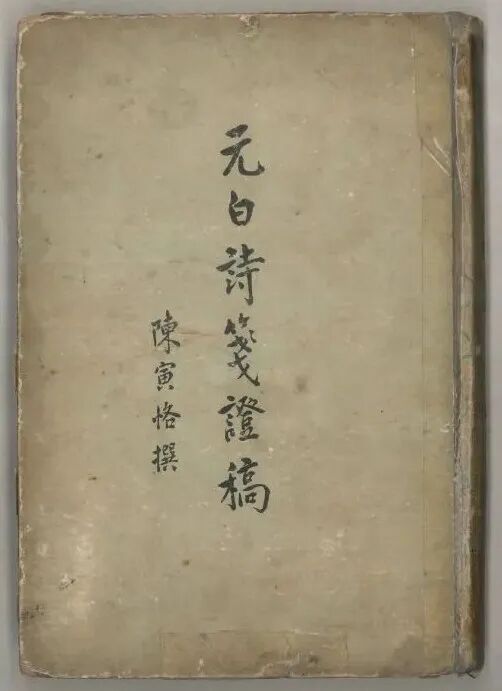 元白詩箋證稿
陳寅恪撰